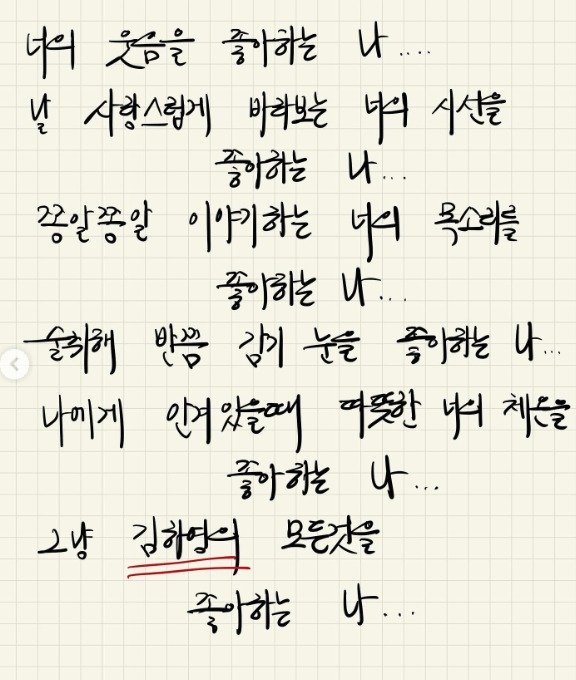 너의 웃음을 좋아하는 나....
날 사랑스럽게 바라보는 너의 시선을
좋아하는 나...
쫑알쫑알 이야기하는 너의 목소리를
좋아하는 나...
술취해 반쯤 감기 눈을 좋아하는 나...
나에게 안겨있을때 따뜻한 너의 체온을
좋아하는 나...
그냥 모든것을
좋아하는 나...